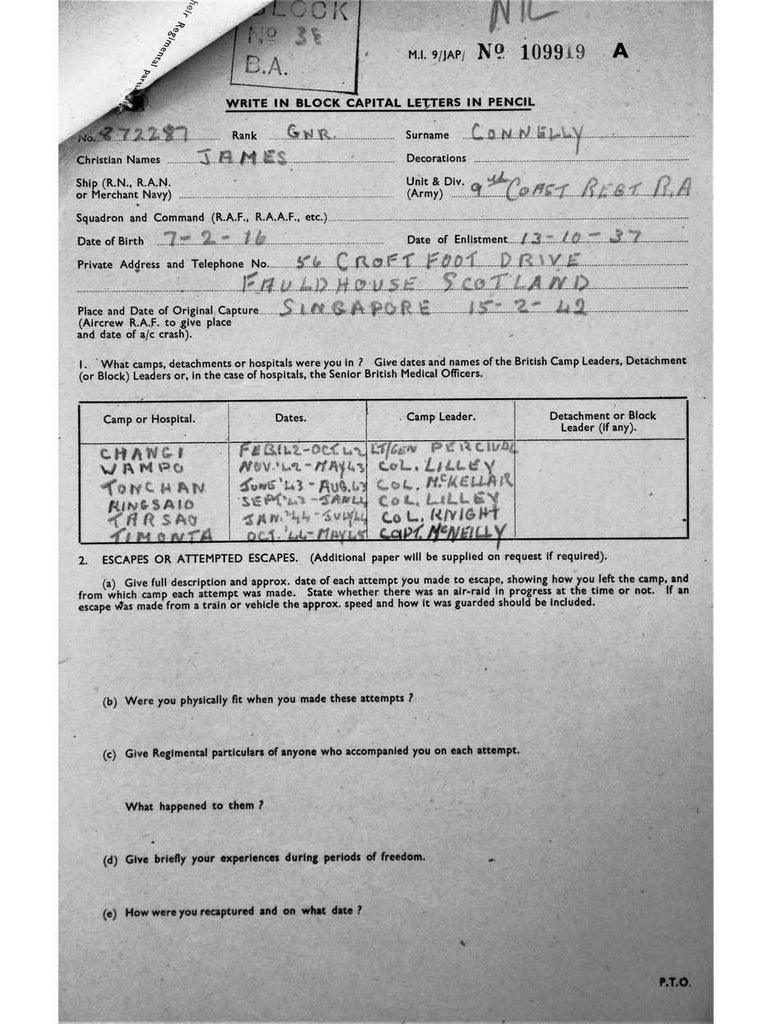 heir Regimental parti
BLOCK
Nº 38
B.A.
NIL
M.I. 9/JAP/ Nº 109919 A
WRITE IN BLOCK CAPITAL LETTERS IN PENCIL
No. 872287 Rank GNR. Surname CONNELLY
Christian Names JAMES Decorations
Ship (R.N., R.A.N. or Merchant Navy) Unit & Div. (Army) 9th COAST REGT R.A
Squadron and Command (R.A.F., R.A.A.F., etc.)
Date of Birth 7-2-16 Date of Enlistment 13-10-37
Private Address and Telephone No. 56 CROFT FOOT DRIVE
FAULDHOUSE SCOTLAND
Place and Date of Original Capture SINGAPORE 15-2-42
(Aircrew R.A.F. to give place
and date of a/c crash).
1. What camps, detachments or hospitals were you in ? Give dates and names of the British Camp Leaders, Detachment
(or Block) Leaders or, in the case of hospitals, the Senior British Medical Officers.
Camp or Hospital. Dates. Camp Leader. Detachment or Block Leader (if any).
CHANGI FEB.42-OCT.42 LT/GEN PERCIVAL
WAMPO NOV.'42-MAY43 COL. LILLEY
TONCHAN JUNE'43-AUG.43 COL. McKELLAR
KINGSAIO SEPT'43-JAN44 COL. LILLEY
TARSAO JAN.'44-JULY44 COL. KNIGHT
TIMONTA OCT.'44-MAY45 CAPT. McNEILLY
2. ESCAPES OR ATTEMPTED ESCAPES. (Additional paper will be supplied on request if required).
(a) Give full description and approx. date of each attempt you made to escape, showing how you left the camp, and
from which camp each attempt was made. State whether there was an air-raid in progress at the time or not. If an
escape was made from a train or vehicle the approx. speed and how it was guarded should be included.
(b) Were you physically fit when you made these attempts ?
(c) Give Regimental particulars of anyone who accompanied you on each attempt.
What happened to them ?
(d) Give briefly your experiences during periods of freedom.
(e) How were you recaptured and on what date ?
P.T.O.